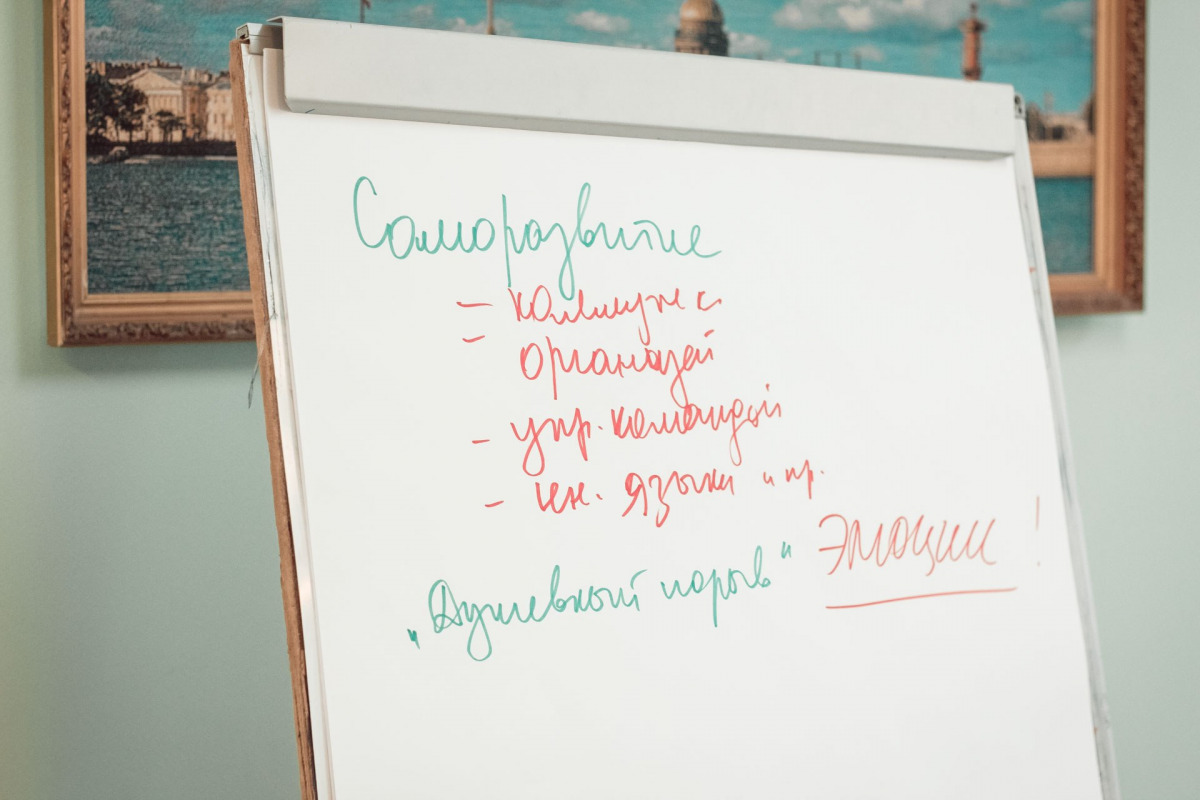 Саморазвитие
-
-
- упр. командой
- ин. языки и пр.
„Душевный порыв“ ЭМОЦИИ !